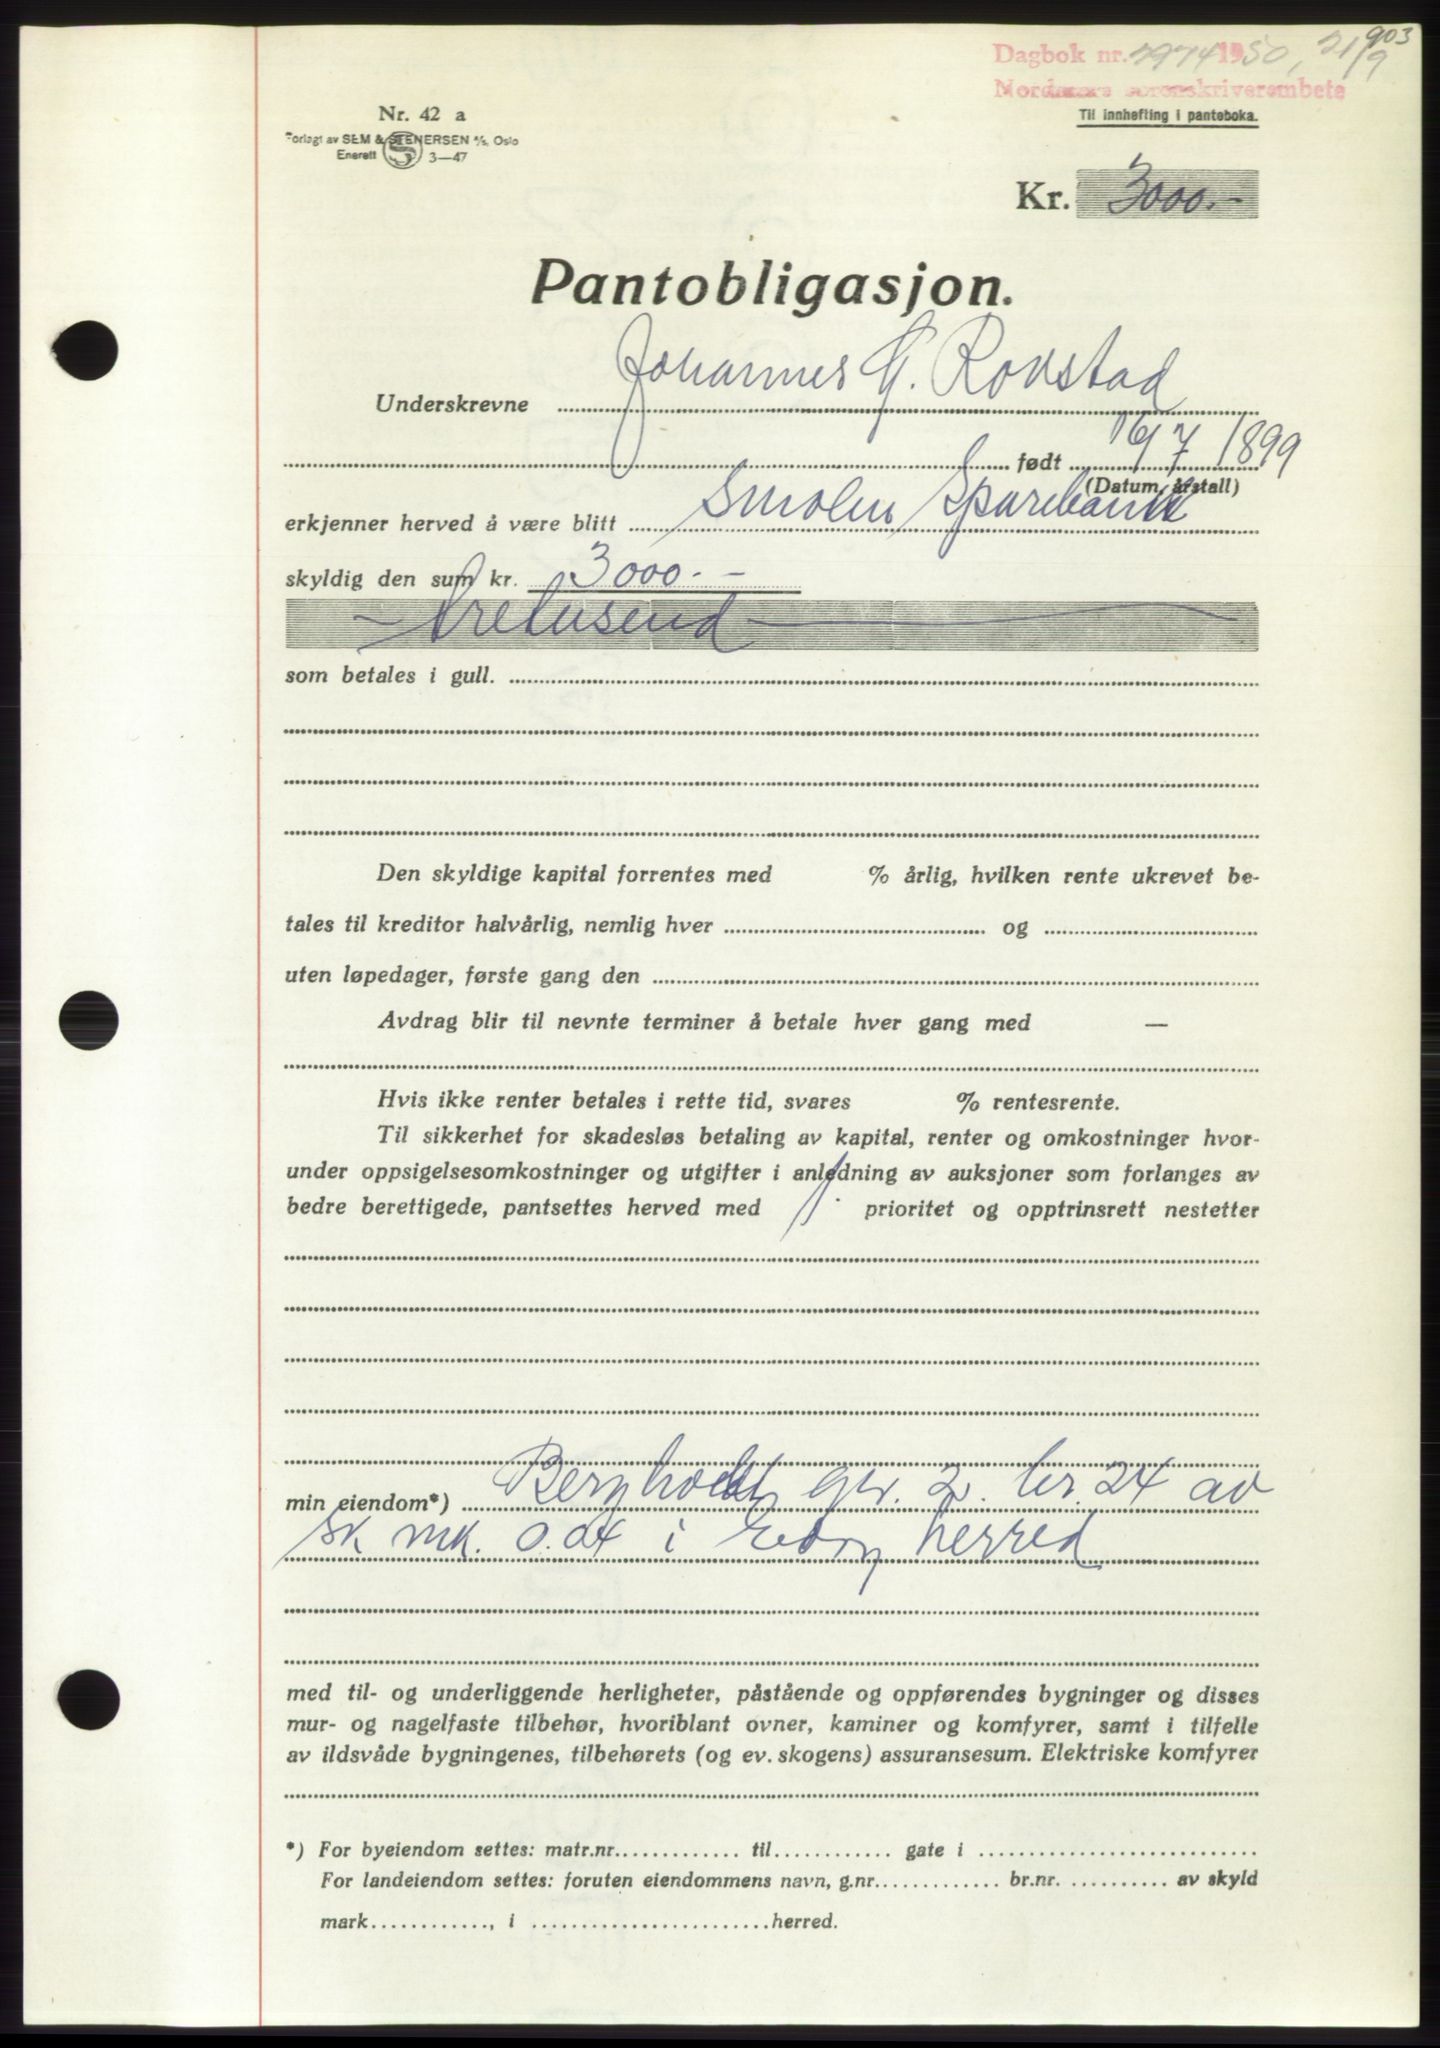 903
Dagbok nr. 2974 1950, 21/9
Nordmøre sorenskriverembete
Nr. 42 a
Til innhefting i panteboka.
Forlagt av SEM & STENERSEN A/S, Oslo
Enerett S 3—47
Kr. 3000.-
Pantobligasjon.
Underskrevne Johannes G. Rovstad
født 16/7 1899
(Datum, årstall)
erkjenner herved å være blitt Smølen Sparebank
skyldig den sum kr. 3000.-
- Tretusend -
som betales i gull.
Den skyldige kapital forrentes med % årlig, hvilken rente ukrevet be-
tales til kreditor halvårlig, nemlig hver og
uten løpedager, første gang den
Avdrag blir til nevnte terminer å betale hver gang med —
Hvis ikke renter betales i rette tid, svares % rentesrente.
Til sikkerhet for skadesløs betaling av kapital, renter og omkostninger hvor-
under oppsigelsesomkostninger og utgifter i anledning av auksjoner som forlanges av
bedre berettigede, pantsettes herved med 1. prioritet og opptrinsrett nestetter
min eiendom*) gnr. 2. br. 24 av
sk mk. 0.04 i Edøy herred
med til- og underliggende herligheter, påstående og oppførendes bygninger og disses
mur- og nagelfaste tilbehør, hvoriblant ovner, kaminer og komfyrer, samt i tilfelle
av ildsvåde bygningenes, tilbehørets (og ev. skogens) assuransesum. Elektriske komfyrer
*) For byeiendom settes: matr.nr. til gate i
For landeiendom settes: foruten eiendommens navn, g.nr. br.nr. av skyld
mark , i herred.